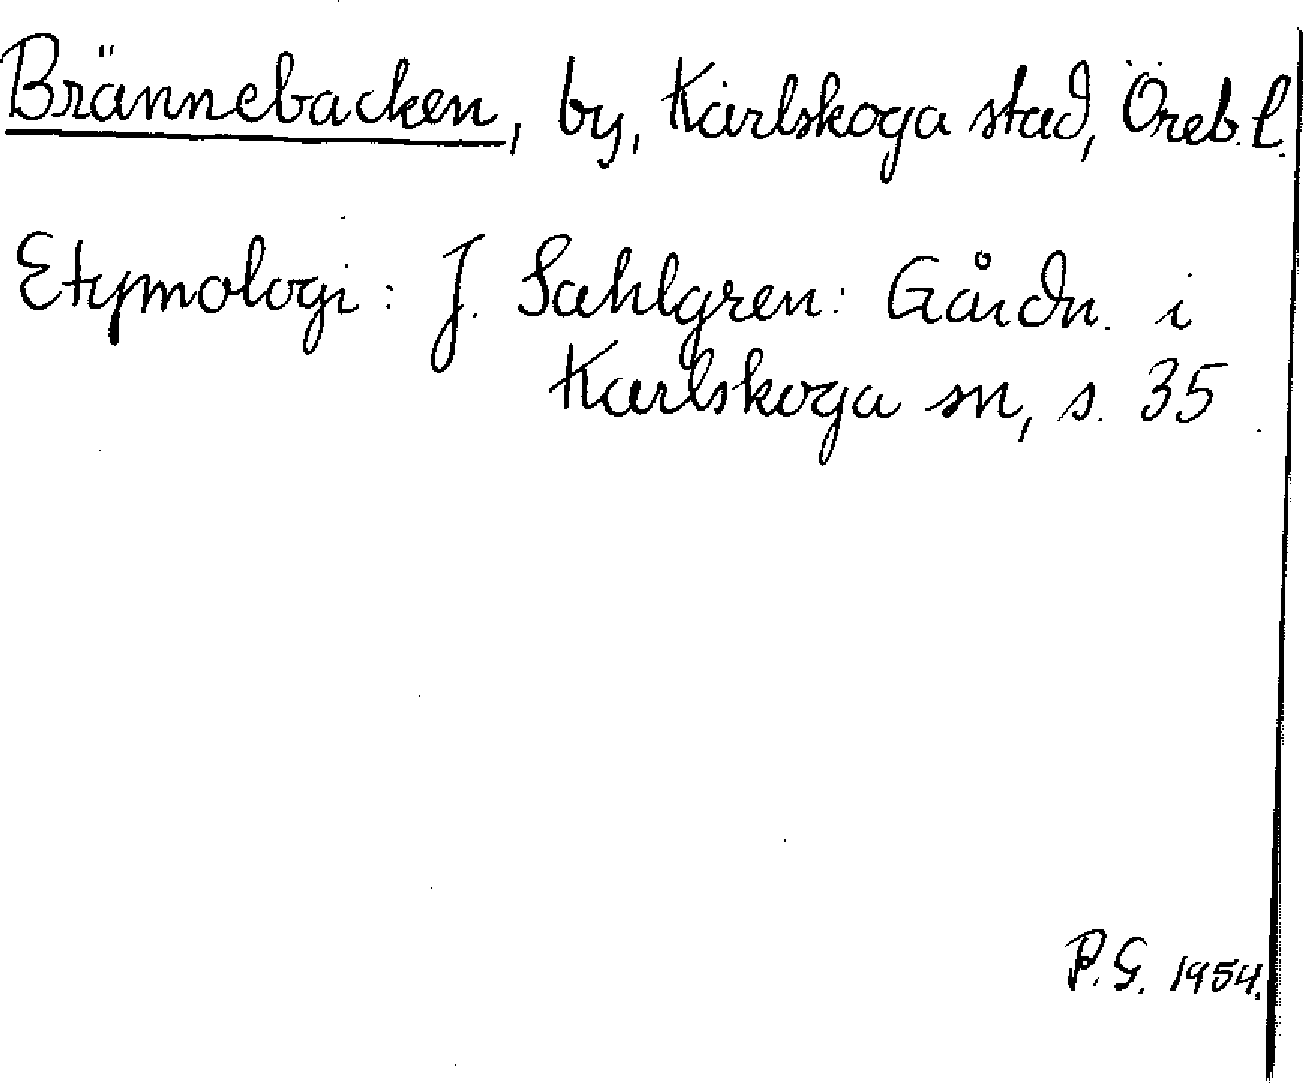 Brännebacken, by, Karlskoga stad, Öreb. l.
Etymologi: J. Sahlgren: Gårdn. i
Karlskoga sn, s. 35.
P.G. 1954.